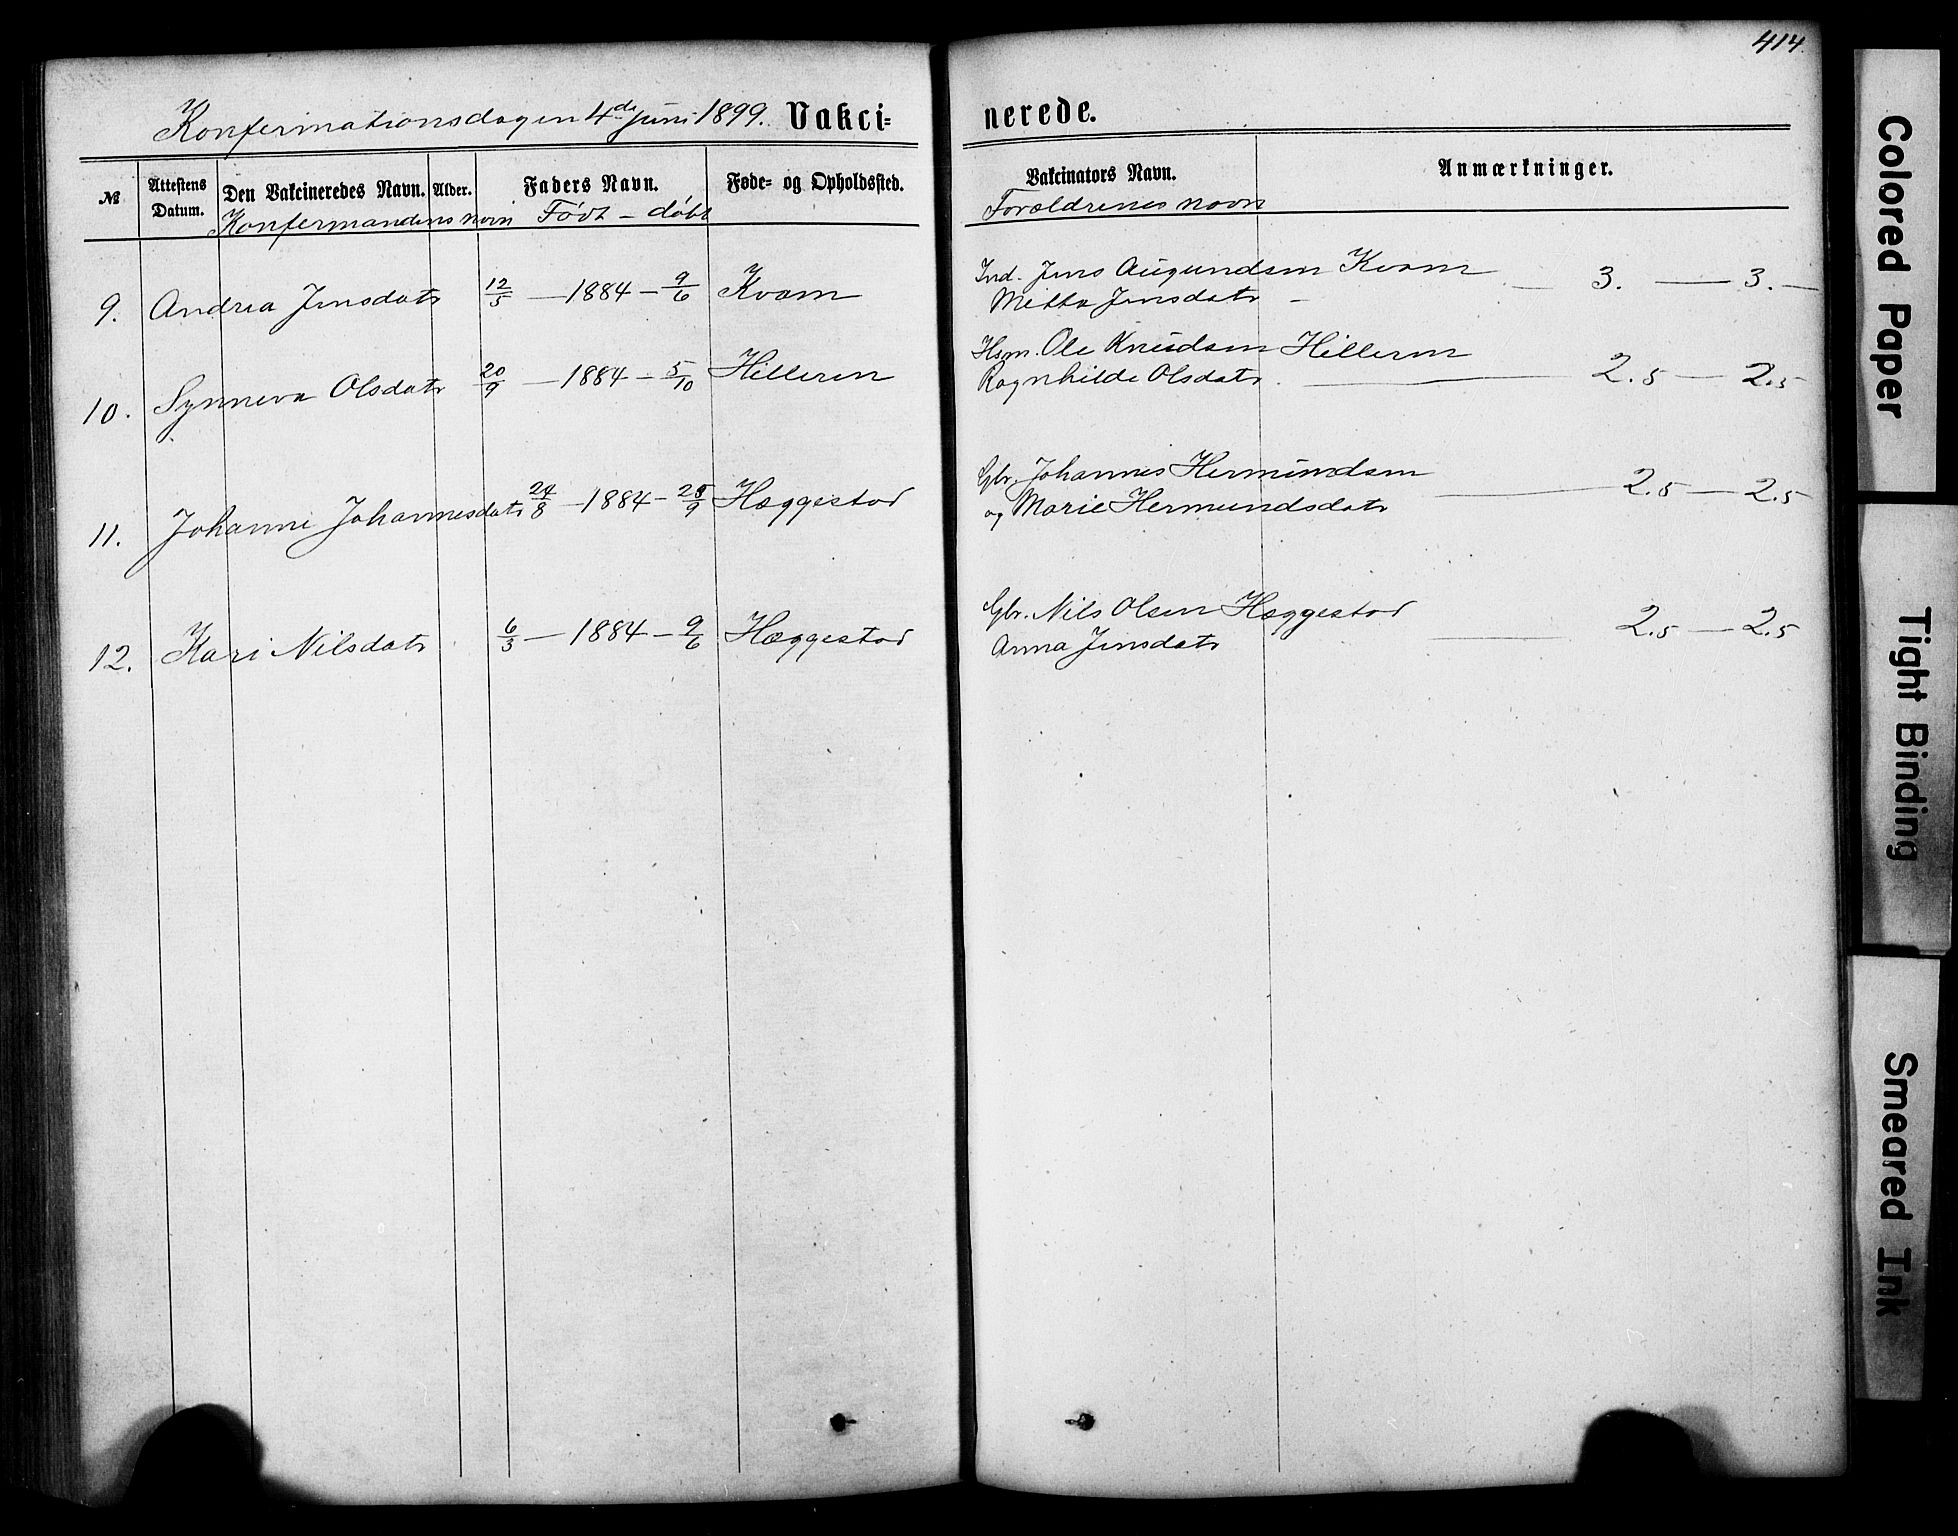 414.
Konfirmationsdagen 4de juni 1899. Vakci=nerede.
№ Attestens Datum. Den Vakcineredes Navn. Alder. Faders Navn. Føde= og Opholdssted. Vakcinators Navn. Anmærkninger.
Konfermandens navn Født – døbt Forældrenes navn
9. Andrea Jensdatr 12/5 — 1884 — 9/6 Kvam
Ind. Jens Augundsen Kvam
Mitta Jensdatr — 3. — 3. —
10. Synneva Olsdatr 20/9 — 1884 — 5/10 Hilleren
Hsm. Ole Knudsen Hilleren
Ragnhilde Olsdatr. — 2.5 — 2.5
11. Johanne Johannesdatr 24/8 — 1884 — /9 Hæggestad
Gbr. Johannes Hermundsen
og Marie Hermundsdatr — 2.5 — 2.5
12. Kari Nilsdatr 6/3 — 1884 — 9/6 Hæggestad
Gbr. Nils Olsen Hæggestad
Anna Jensdatr — 2.5 — 2.5
Colored Paper
Tight Binding
Smeared Ink